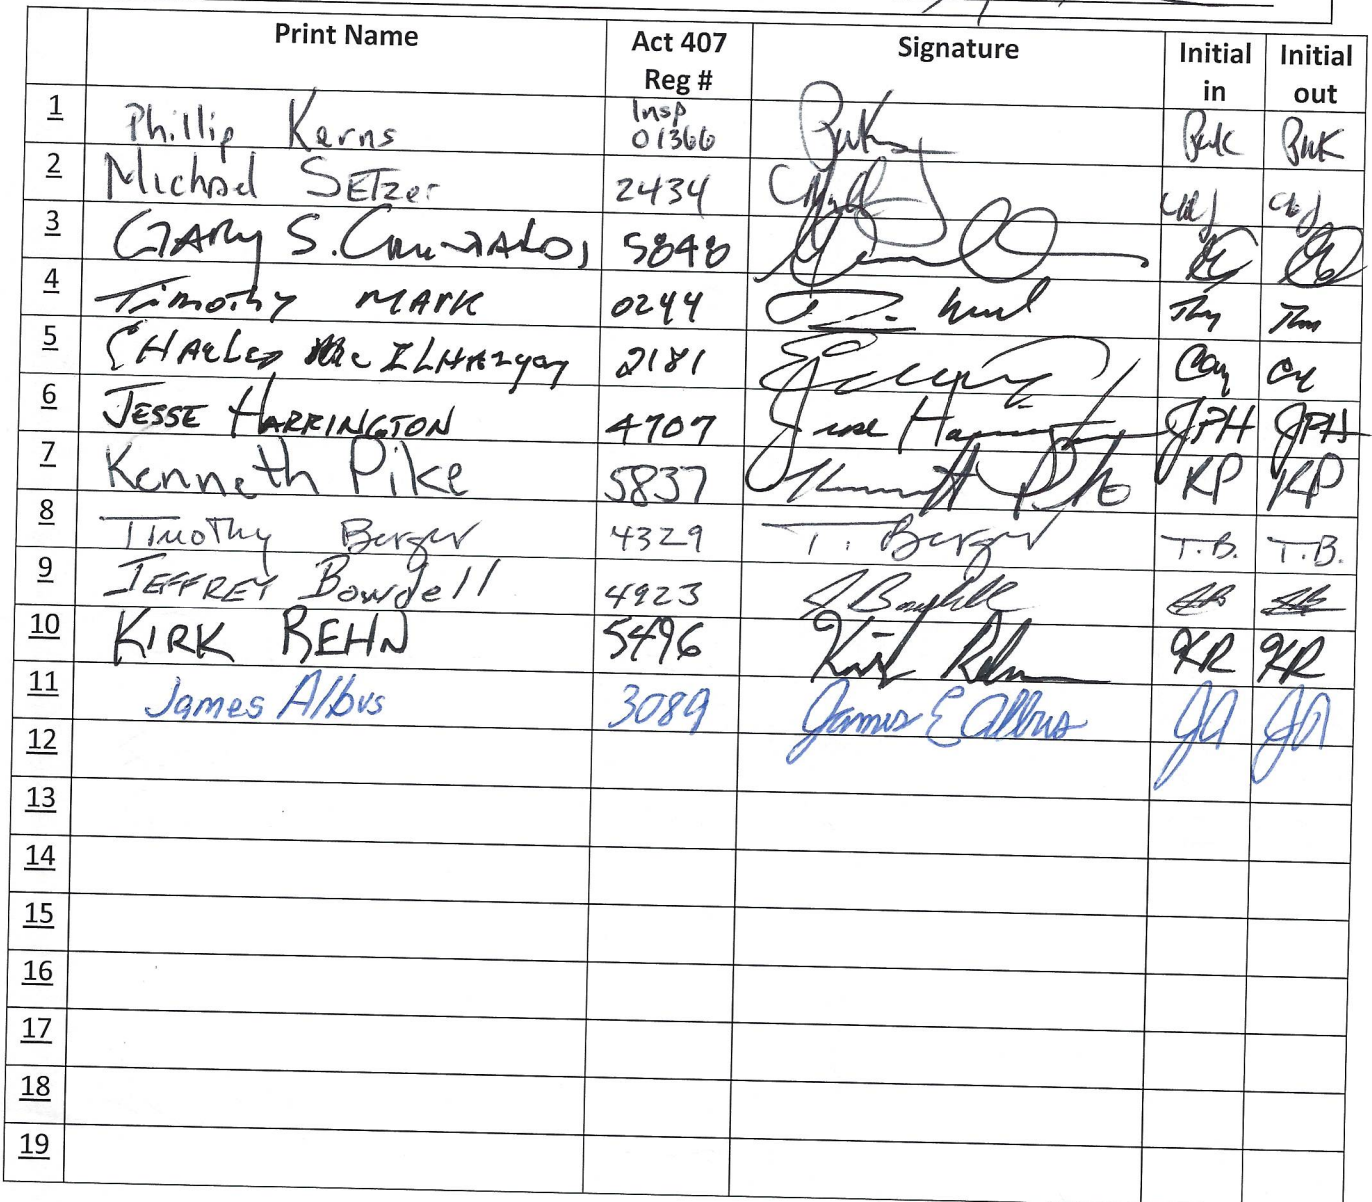 Print Name Act 407 Reg # Signature Initial in Initial out
1 Phillip Kerns Insp 01366 PWK PWK
2 Michael SETzer 2434
3 GARY S. 5848
4 Timothy MARK 0244 Tm
5 CHARLES 2181
6 JESSE HARRINGTON 4707 Jesse Harrington JPH JPH
7 Kenneth Pike 5837 Kenneth Pike KP KP
8 Timothy Berger 4329 T. Berger T.B. T.B.
9 JEFFREY Bowdell 4923
10 KIRK REHN 5496 Kirk Rehn KR KR
11 James Albus 3089 James E Albus JA JA
12
13
14
15
16
17
18
19